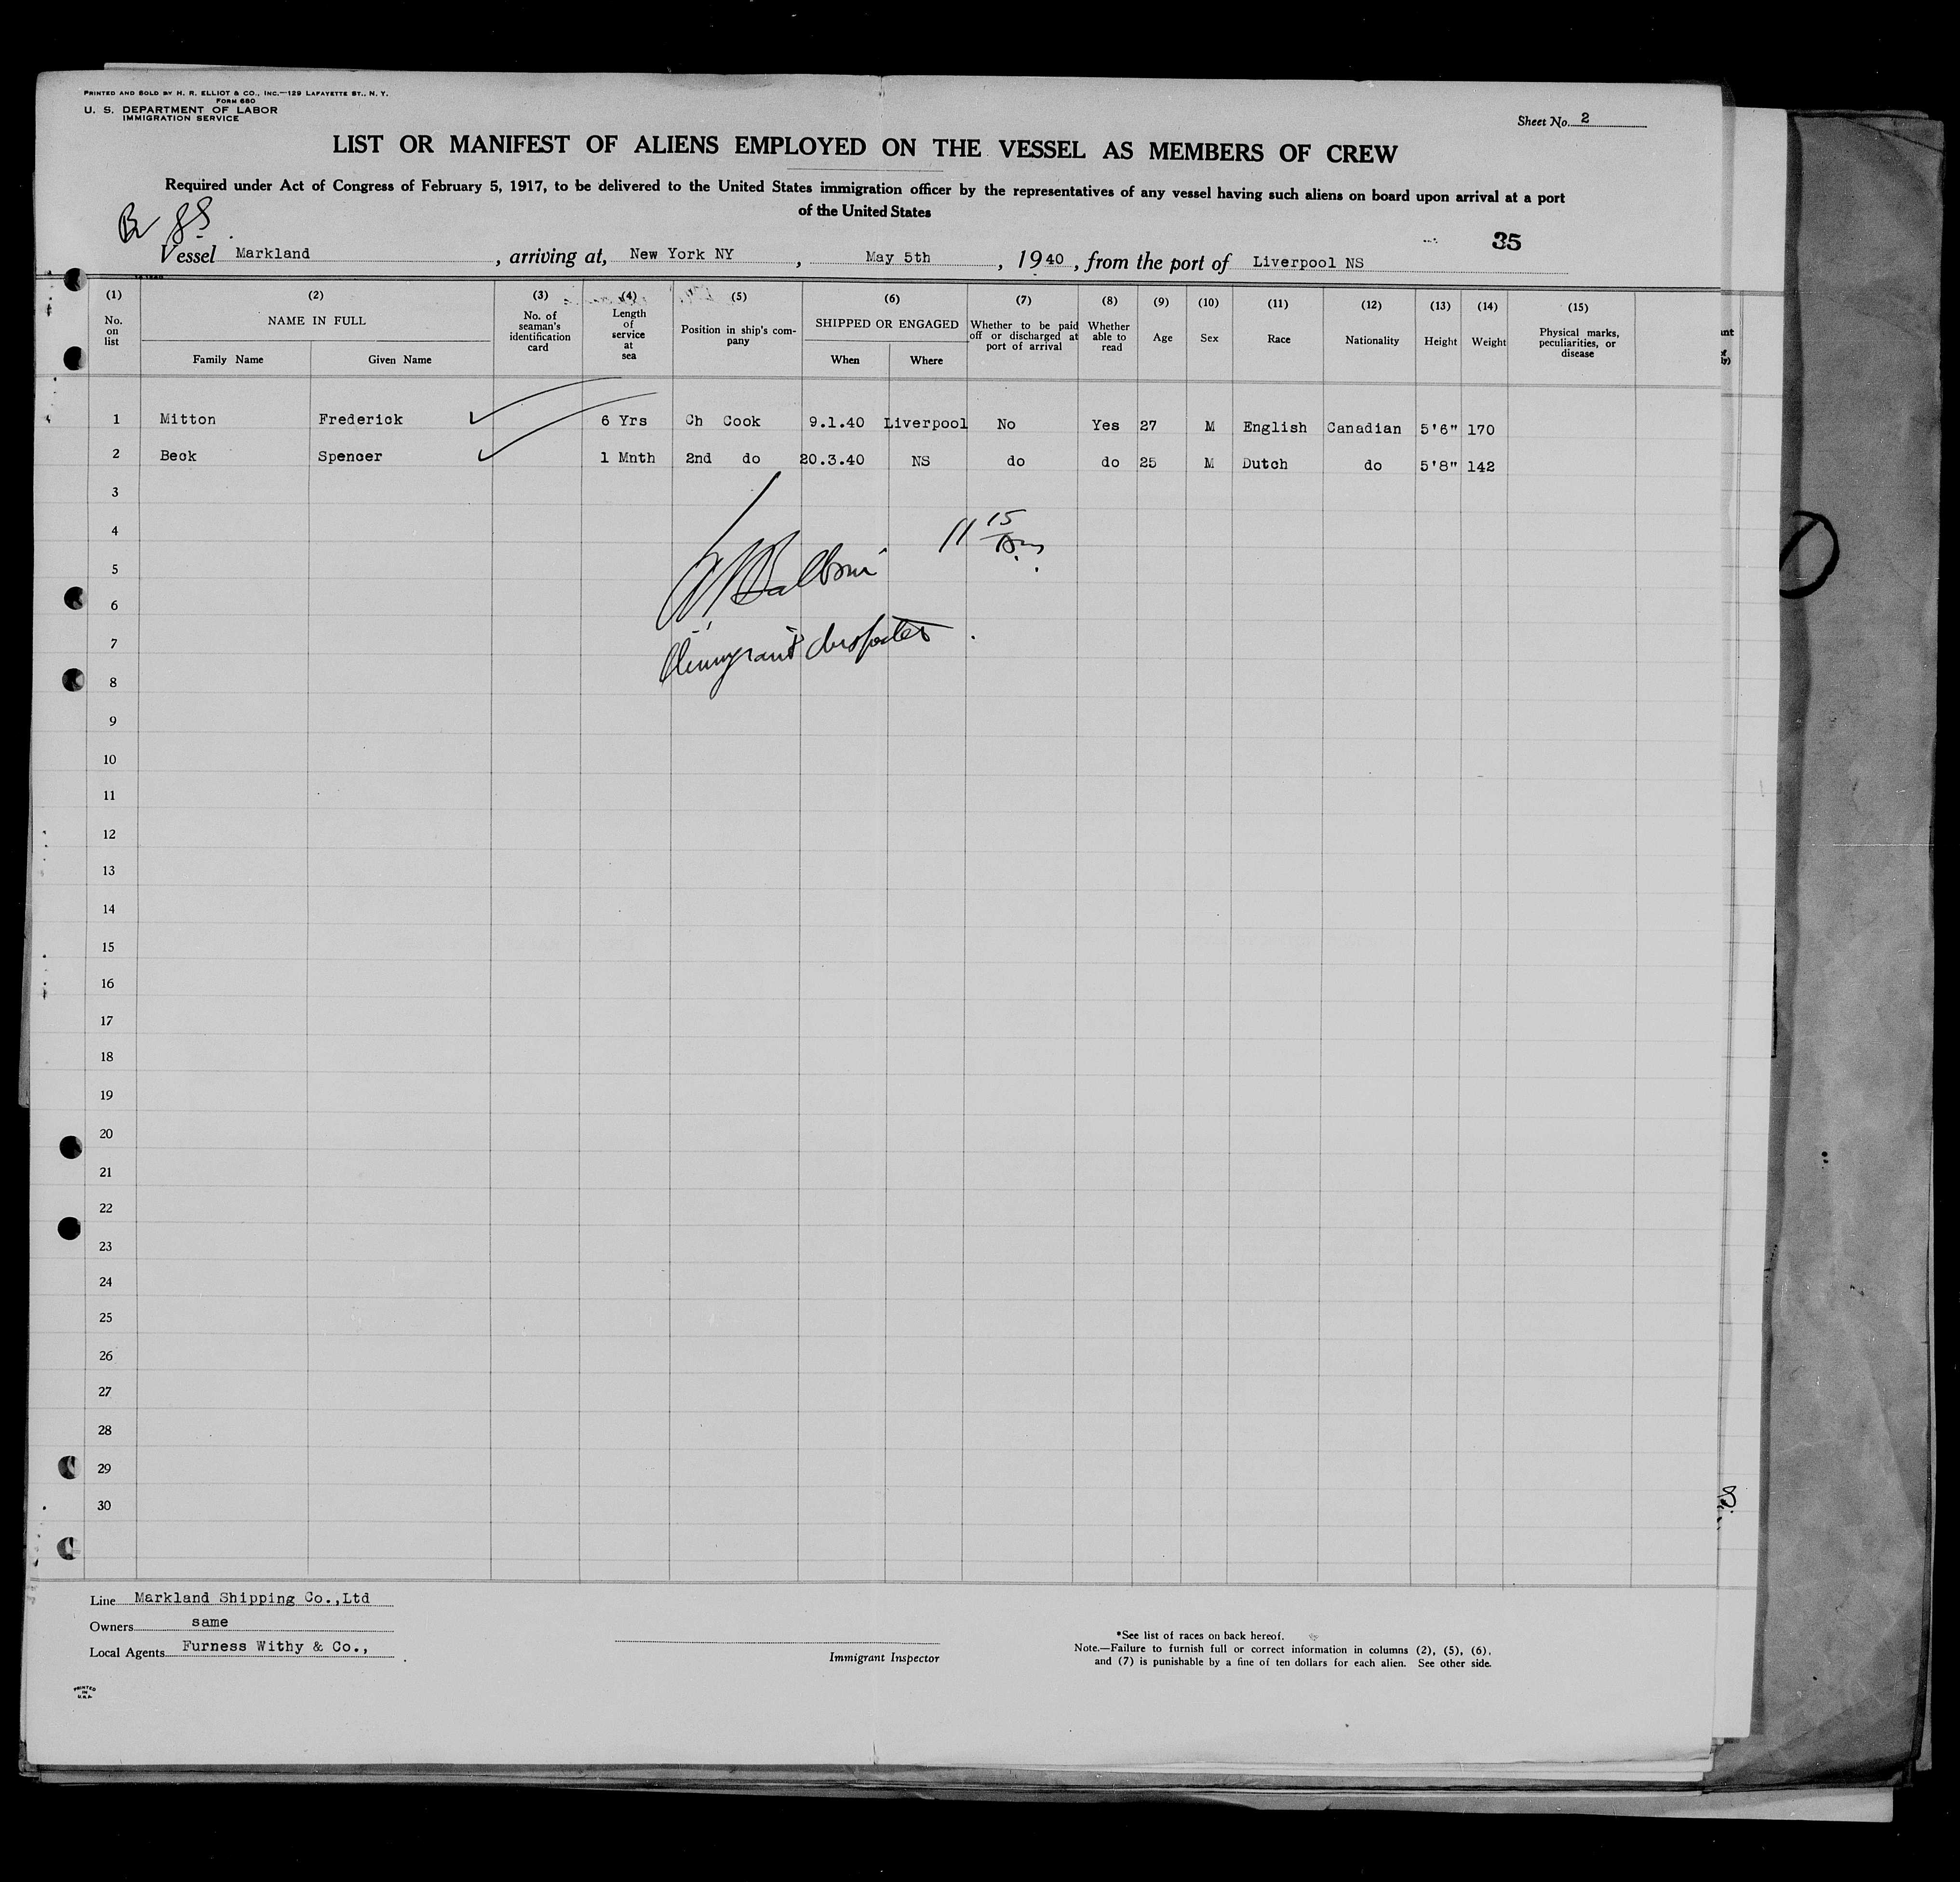 PRINTED AND SOLD BY H. R. ELLIOT & CO., INC.—129 LAFAYETTE ST., N. Y.
FORM 680
U. S. DEPARTMENT OF LABOR
IMMIGRATION SERVICE
Sheet No. 2
LIST OR MANIFEST OF ALIENS EMPLOYED ON THE VESSEL AS MEMBERS OF CREW
Required under Act of Congress of February 5, 1917, to be delivered to the United States immigration officer by the representatives of any vessel having such aliens on board upon arrival at a port
of the United States
35
Vessel Markland, arriving at, New York NY, May 5th, 1940, from the port of Liverpool NS
(1) (2) (3) (4) (5) (6) (7) (8) (9) (10) (11) (12) (13) (14) (15)
No. on list NAME IN FULL Family Name Given Name No. of seaman's identification card Length of service at sea Position in ship's company SHIPPED OR ENGAGED When Where Whether to be paid off or discharged at port of arrival Whether able to read Age Sex Race Nationality Height Weight Physical marks, peculiarities, or disease
1 Mitton Frederick 6 Yrs Ch Cook 9.1.40 Liverpool No Yes 27 M English Canadian 5'6" 170
2 Beck Spencer 1 Mnth 2nd do 20.3.40 NS do do 25 M Dutch do 5'8" 142
3
4
11 15
5
6
7
8
9
10
11
12
13
14
15
16
17
18
19
20
21
22
23
24
25
26
27
28
29
30
Line Markland Shipping Co.,Ltd
Owners same
Local Agents Furness Withy & Co.,
Immigrant Inspector
*See list of races on back hereof.
Note.—Failure to furnish full or correct information in columns (2), (5), (6),
and (7) is punishable by a fine of ten dollars for each alien. See other side.
PRINTED
IN
U.S.A.